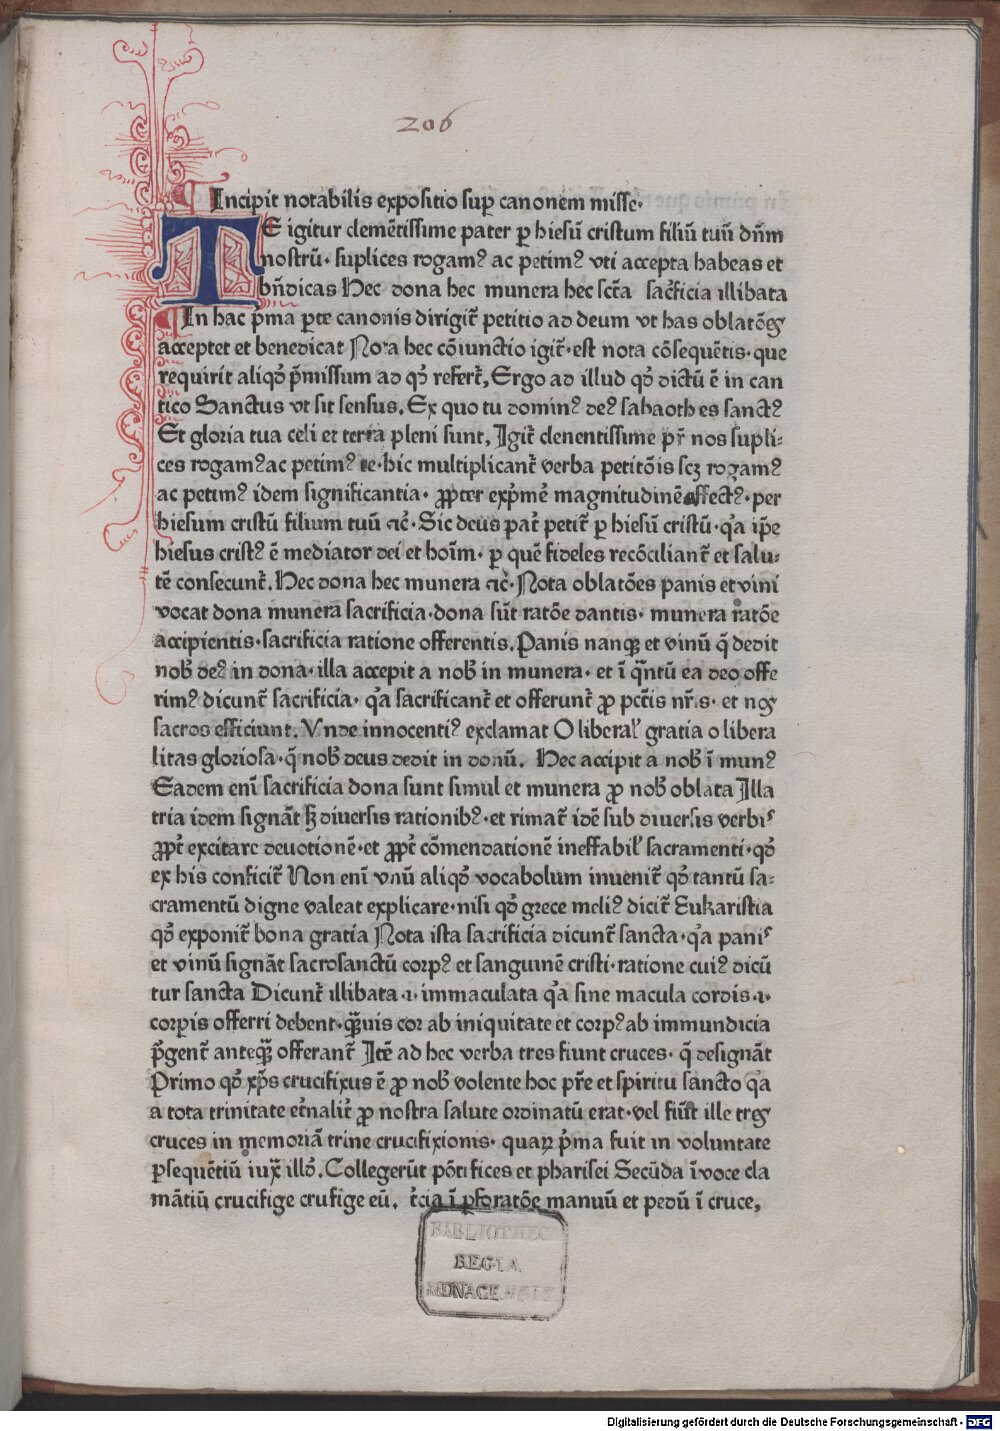 206
Incipit notabilis expositio sup̄ canonem misse·
TE igitur clemētissime pater p̱ hiesū cristum filiū tuū dn̄m
nostrū· suplices rogamꝰ ac petimꝰ vti accepta habeas et
bn̄dicas Hec dona hec munera hec sct̄a sac̄ficia illibata
¶In hac p̄ma p̱te canonis dirigit᷑ petitio ad deum vt has oblatōes
acceptet et benedicat Nota hec cōiunctio igit᷑·est nota cōsequētis·que
requirit aliqd̓ p̄missum ad qd̓ refert᷑, Ergo ad illud qd̓ dictū ē in can
tico Sanctus vt sit sensus. Ex quo tu dominꝰ deꝰ sabaoth es sanctꝰ
Et gloria tua celi et terra pleni sunt, Igit᷑ clenentissime pr̄ nos supli⸗
ces rogamꝰ ac petimꝰ te·hic multiplicant᷑ verba petitōis scꝫ rogamꝰ
ac petimꝰ idem significantia· ꝓpter exp̄mē magnitudinē affectꝰ·per
hiesum cristū filium tuū ⁊c̄· Sic deus pat᷑ petit᷑ p̱ hiesū cristū·qa ip̄e
hiesus cristꝰ ē mediator dei et hoīm· p̱ quē fideles recōciliant᷑ et salu⸗
tē consecunt᷑. Hec dona hec munera ⁊c̄· Nota oblatōes panis et vini
vocat dona munera sacrificia·dona sūt ratōe dantis· munera ratōe
accipientis·sacrificia ratione offerentis. Panis nanqꝫ et vinū q̄ dedit
nob̓ deꝰ in dona·illa accepit a nob̓ in munera· et ī q̄ntū ea deo offe
rimꝰ dicunt᷑ sacrificia· qa sacrificant᷑ et offerunt᷑ ꝓ pct̄is nr̄is· et nos
sacros efficiunt. Vnde innocentiꝰ exclamat O liberal̓ gratia o libera
litas gloriosa·q̄ nob̓ deus dedit in donū. Hec accipit a nob̓ ī munꝰ
Eadem enī sacrificia dona sunt simul et munera ꝓ nob̓ oblata Illa
tria idem signāt hꝫ diuersis rationibꝰ·et rimat᷑ idē sub diuersis verbis
ꝓpt᷑ excitare deuotionē·et ꝓpt᷑ cōmendationē ineffabil̓ sacramenti·qd̓
ex his conficit᷑ Non enī vnū aliqd̓ vocabolum inuenit᷑ qd̓ tantū sa⸗
cramentū digne valeat explicare·nisi qd̓ grece meliꝰ dicit᷑ Eukaristia
qd̓ exponit᷑ bona gratia Nota ista sacrificia dicunt᷑ sancta·qa panis
et vinū signāt sacrosanctū corpꝰ et sanguinē cristi·ratione cuiꝰ dicū
tur sancta Dicunt᷑ illibata ·i· immaculata qa sine macula cordis·i·
corp̱is offerri debent·qꝫuis cor ab iniquitate et corpꝰ ab immundicia
p̄gent᷑ anteqꝫ offerant᷑ Itē ad hec verba tres fiunt cruces· q̄ designāt
Primo qd̓ xp̄s crucifixus ē ꝓ nob̓ volente hoc pr̄e et spiritu sancto qa
a tota trinitate et᷑nalit᷑ ꝓ nostra salute ordinatū erat·vel fiūt ille tres
cruces in memoriā trine crucifixionis· quaꝝ p̄ma fuit in voluntate
p̱sequētiū iux̄ illd̓. Collegerūt pōtifices et pharisei Secūda ī voce cla
mātiū crucifige crufige eū. t᷑cia ī p̱foratōe manuū et pedū ī cruce,
BIBLIOTHECA
REGIA
MONACENSIS
Digitalisierung gefördert durch die Deutsche Forschungsgemeinschaft - DFG